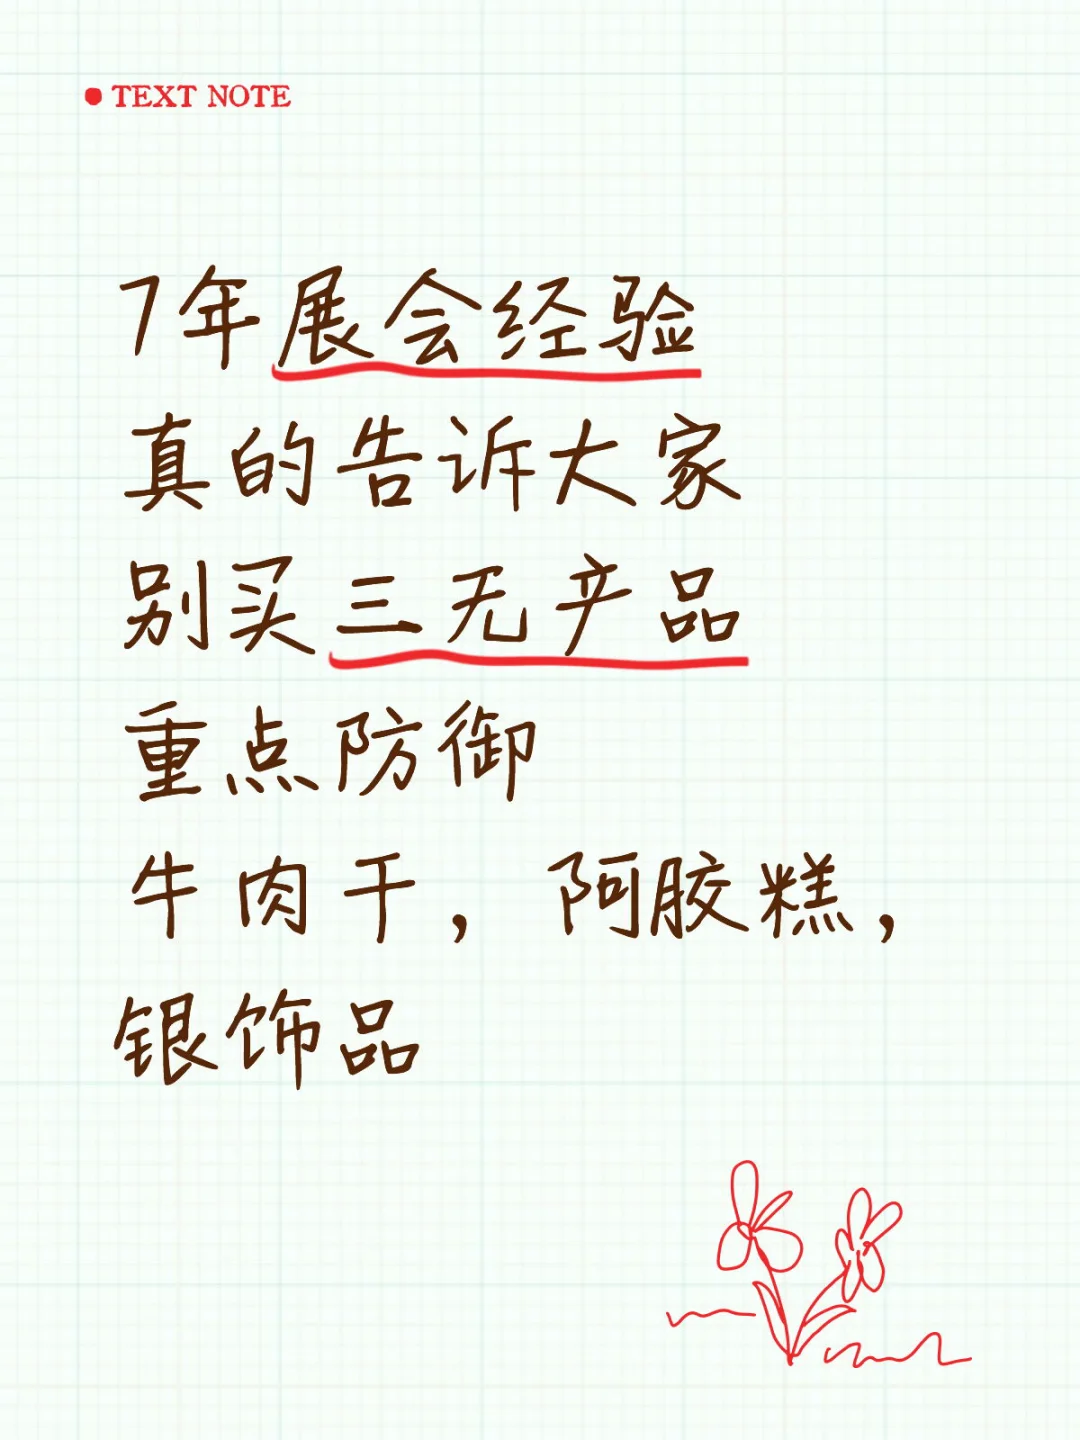 TEXT NOTE
7年展会经验
真的告诉大家
别买三无产品
重点防御
牛肉干，阿胶糕，
银饰品